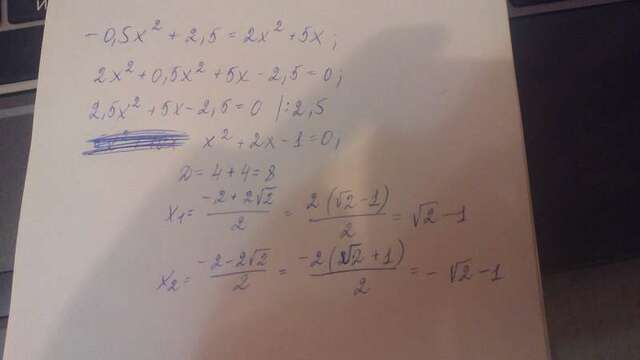 -0,5x² + 2,5 = 2x² + 5x;
2x² + 0,5x² + 5x - 2,5 = 0;
2,5x² + 5x - 2,5 = 0 |:2,5
x² + 2x - 1 = 0;
D = 4 + 4 = 8
x₁ = (-2 + 2√2)/2 = 2(√2 - 1)/2 = √2 - 1
x₂ = (-2 - 2√2)/2 = -2(√2 + 1)/2 = -√2 - 1